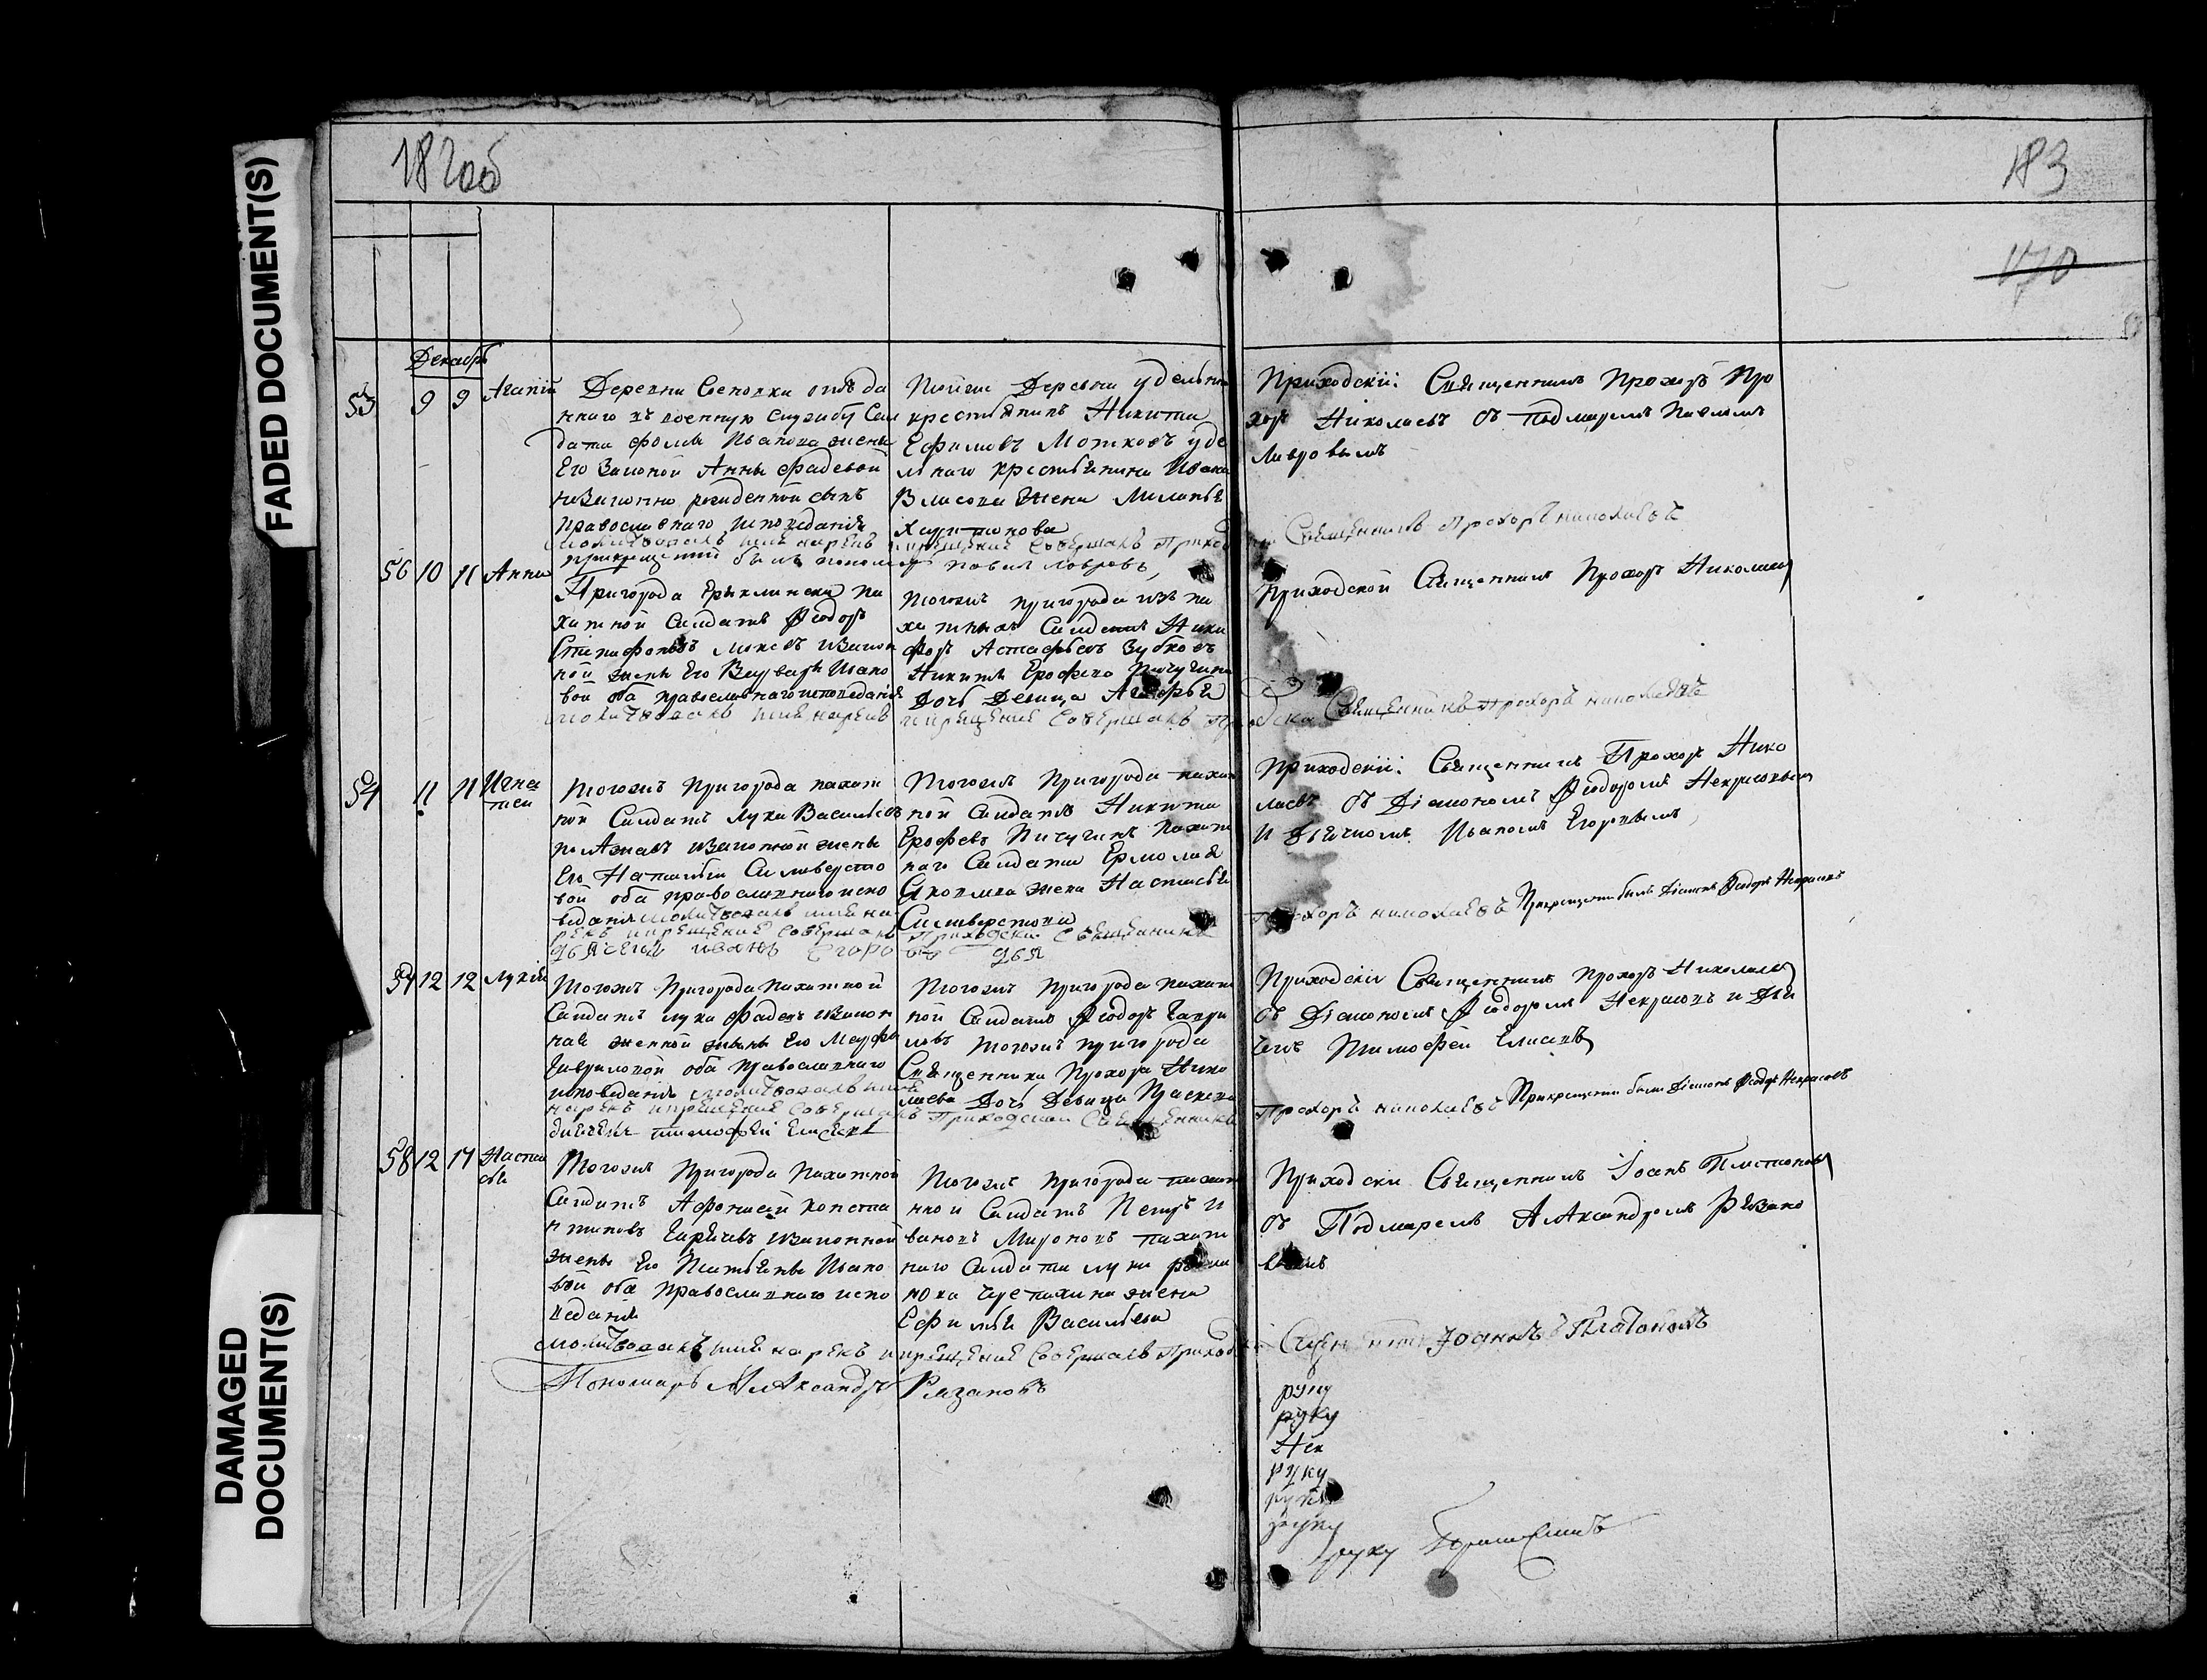 FAADED DOCUMENT(S)
DAMAGED
DOCUMENT(S)
182об
183
170
Декабрь
53 9 9 Агапiй
Деревни отъда
ннаго въ военную службу Сал
дата фомы Иванова жены
Его Законой Анны фадевой
незаконно рожденной сынъ
православнаго исповеданiя
молитвовалъ имя нарекъ
при крещенiи былъ пономарь Павелъ Лавровъ
Тойже Деревни удельной
крестьянинъ Никита
Ефимовъ Мотковъ уде
льнаго крестьянина Ивана
Власова жена Миланья
Харитонова
и крещение совершалъ Приход
Приходскiй Священникъ Прохоръ Про
хоръ Николаевъ съ Подмаремъ Павломъ
Лавровымъ
Священникъ Прохоръ николаевъ
56 10 11 Анна
Пригорода Ерыклинска Па
хатной Салдатъ Феодоръ
законъ
ной жены Его Варвары Ивано
вой оба православнаго исповеданiя
молитвовалъ имя нарекъ
Тогожъ пригорода изъ па
хатныхъ Салдатъ Ники
форъ Астафьевъ Зубковъ
Никиты Ерофеева Пичугина
Дочь Девица
и крещение совершалъ Приходски
Приходской Священникъ Прохоръ Николаевъ
Священникъ Прохоръ николаевъ
54 11 11 Игна
тей
Тогожъ Пригорода пахат
ной Салдатъ Лука Васильевъ
изаконной жены
Его Натальи Сильверсто
вой оба православнаго испо
веданiя молитвовалъ имя на
рекъ и крещение совершалъ
дьячекъ иванъ Егоровъ
Тогожъ Пригорода пахат
ной Салдатъ Никита
Ерофевъ Пичугинъ пахат
наго Салдата Ермолая
Яковлева жена Настасья
Сильверстова
Приходски Священникъ
Приходскiй Священникъ Прохоръ Нико
лаевъ съ Дiакономъ Феодоромъ Некрасовымъ
и Дьячкомъ Иваномъ Егоровымъ
Прохоръ николаевъ При крещенiи былъ Дiаконъ Феодоръ Некрасовъ
54 12 12 Лукiя
Тогожъ Пригорода Пахатной
Салдатъ Лука фадевъ изакон
ная женной жены Его Марфы
Гавриловой оба православнаго
исповеданiя молитвовалъ имя
нарекъ и крещение совершалъ
дьячекъ тимофей Елисевъ
Тогожъ Пригорода пахат
ной Салдатъ Феодоръ Гаври
ловъ Тогожъ пригорода
Священника Прохора Нико
лаева Дочь Девица Праскева
Приходской Священникъ
Приходскiй Священникъ Прохоръ Николаевъ
съ Дiакономъ Феодоромъ Некрасовъ и Дья
чекъ Тимофей Елисевъ
Прохоръ николаевъ При крещенiи былъ Дiаконъ Феодоръ Некрасовъ
58 12 17 Наста
сья
Тогожъ Пригорода Пахатной
Салдатъ Афонасей Конста
нтиновъ изаконной
жены Его Татьяны Ивано
вой оба православнаго испо
веданiя
Тогожъ Пригорода пахат
ной Салдатъ Петръ И
вановъ Мироновъ пахат
наго Салдата Луки
жена
Ефимья Васильева
молитвовалъ имя нарекъ и крещение совершалъ Приход
Пономарь Александръ Рязановъ
Приходски Священникъ Iоанъ Платоновъ
съ Подмаремъ Александромъ Рязано
вымъ
Iоаннъ Платоновъ
руку
руку
Нек
руку
руку
руку
руку